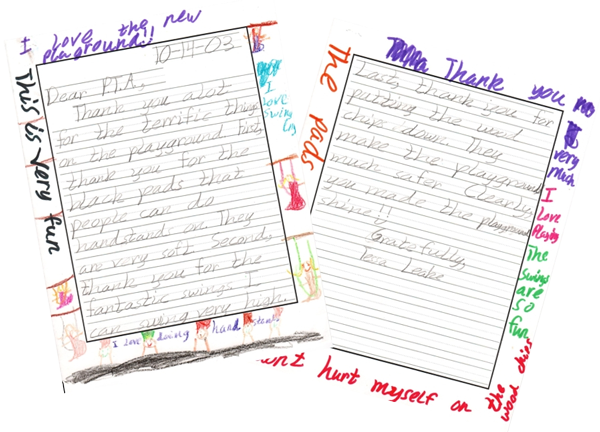 I Love the new
playground!!
This is very fun
10-14-03
Dear P.T.A,
Thank you alot
for the terrific things
on the playground. First,
thank you for the
black pads that
people can do
handstands on. They
are very soft. Second,
thank you for the
fantastic swings I
can swing very high.
I
Love
Swing
I Love doing hand stands
The pads
Thank you
very
much
Last, thank you for
putting the wood
chips down. They
make the playground
much safer. Clearly,
you made the playground
shine!!
Gratefully,
Leake
I
Love
Playing
The
swings
are
so
fun
hurt myself on the
wood chips